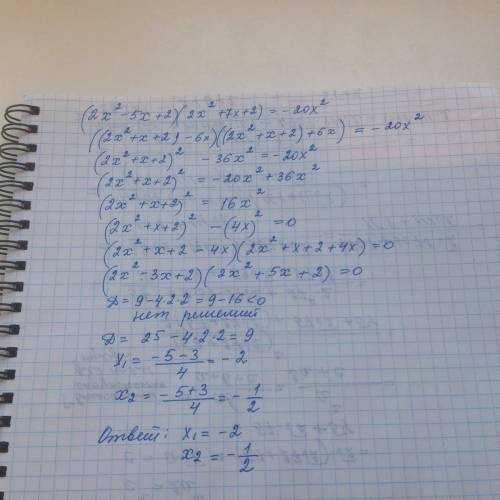 (2x² - 5x + 2)(2x² + 7x + 2) = -20x²
((2x² + x + 2) - 6x)((2x² + x + 2) + 6x) = -20x²
(2x² + x + 2)² - 36x² = -20x²
(2x² + x + 2)² = -20x² + 36x²
(2x² + x + 2)² = 16x²
(2x² + x + 2)² - (4x)² = 0
(2x² + x + 2 - 4x)(2x² + x + 2 + 4x) = 0
(2x² - 3x + 2)(2x² + 5x + 2) = 0
D = 9 - 4·2·2 = 9 - 16 < 0
нет решений
D = 25 - 4·2·2 = 9
x₁ = (-5 - 3)/4 = -2
x₂ = (-5 + 3)/4 = -1/2
Ответ: x₁ = -2
x₂ = -1/2